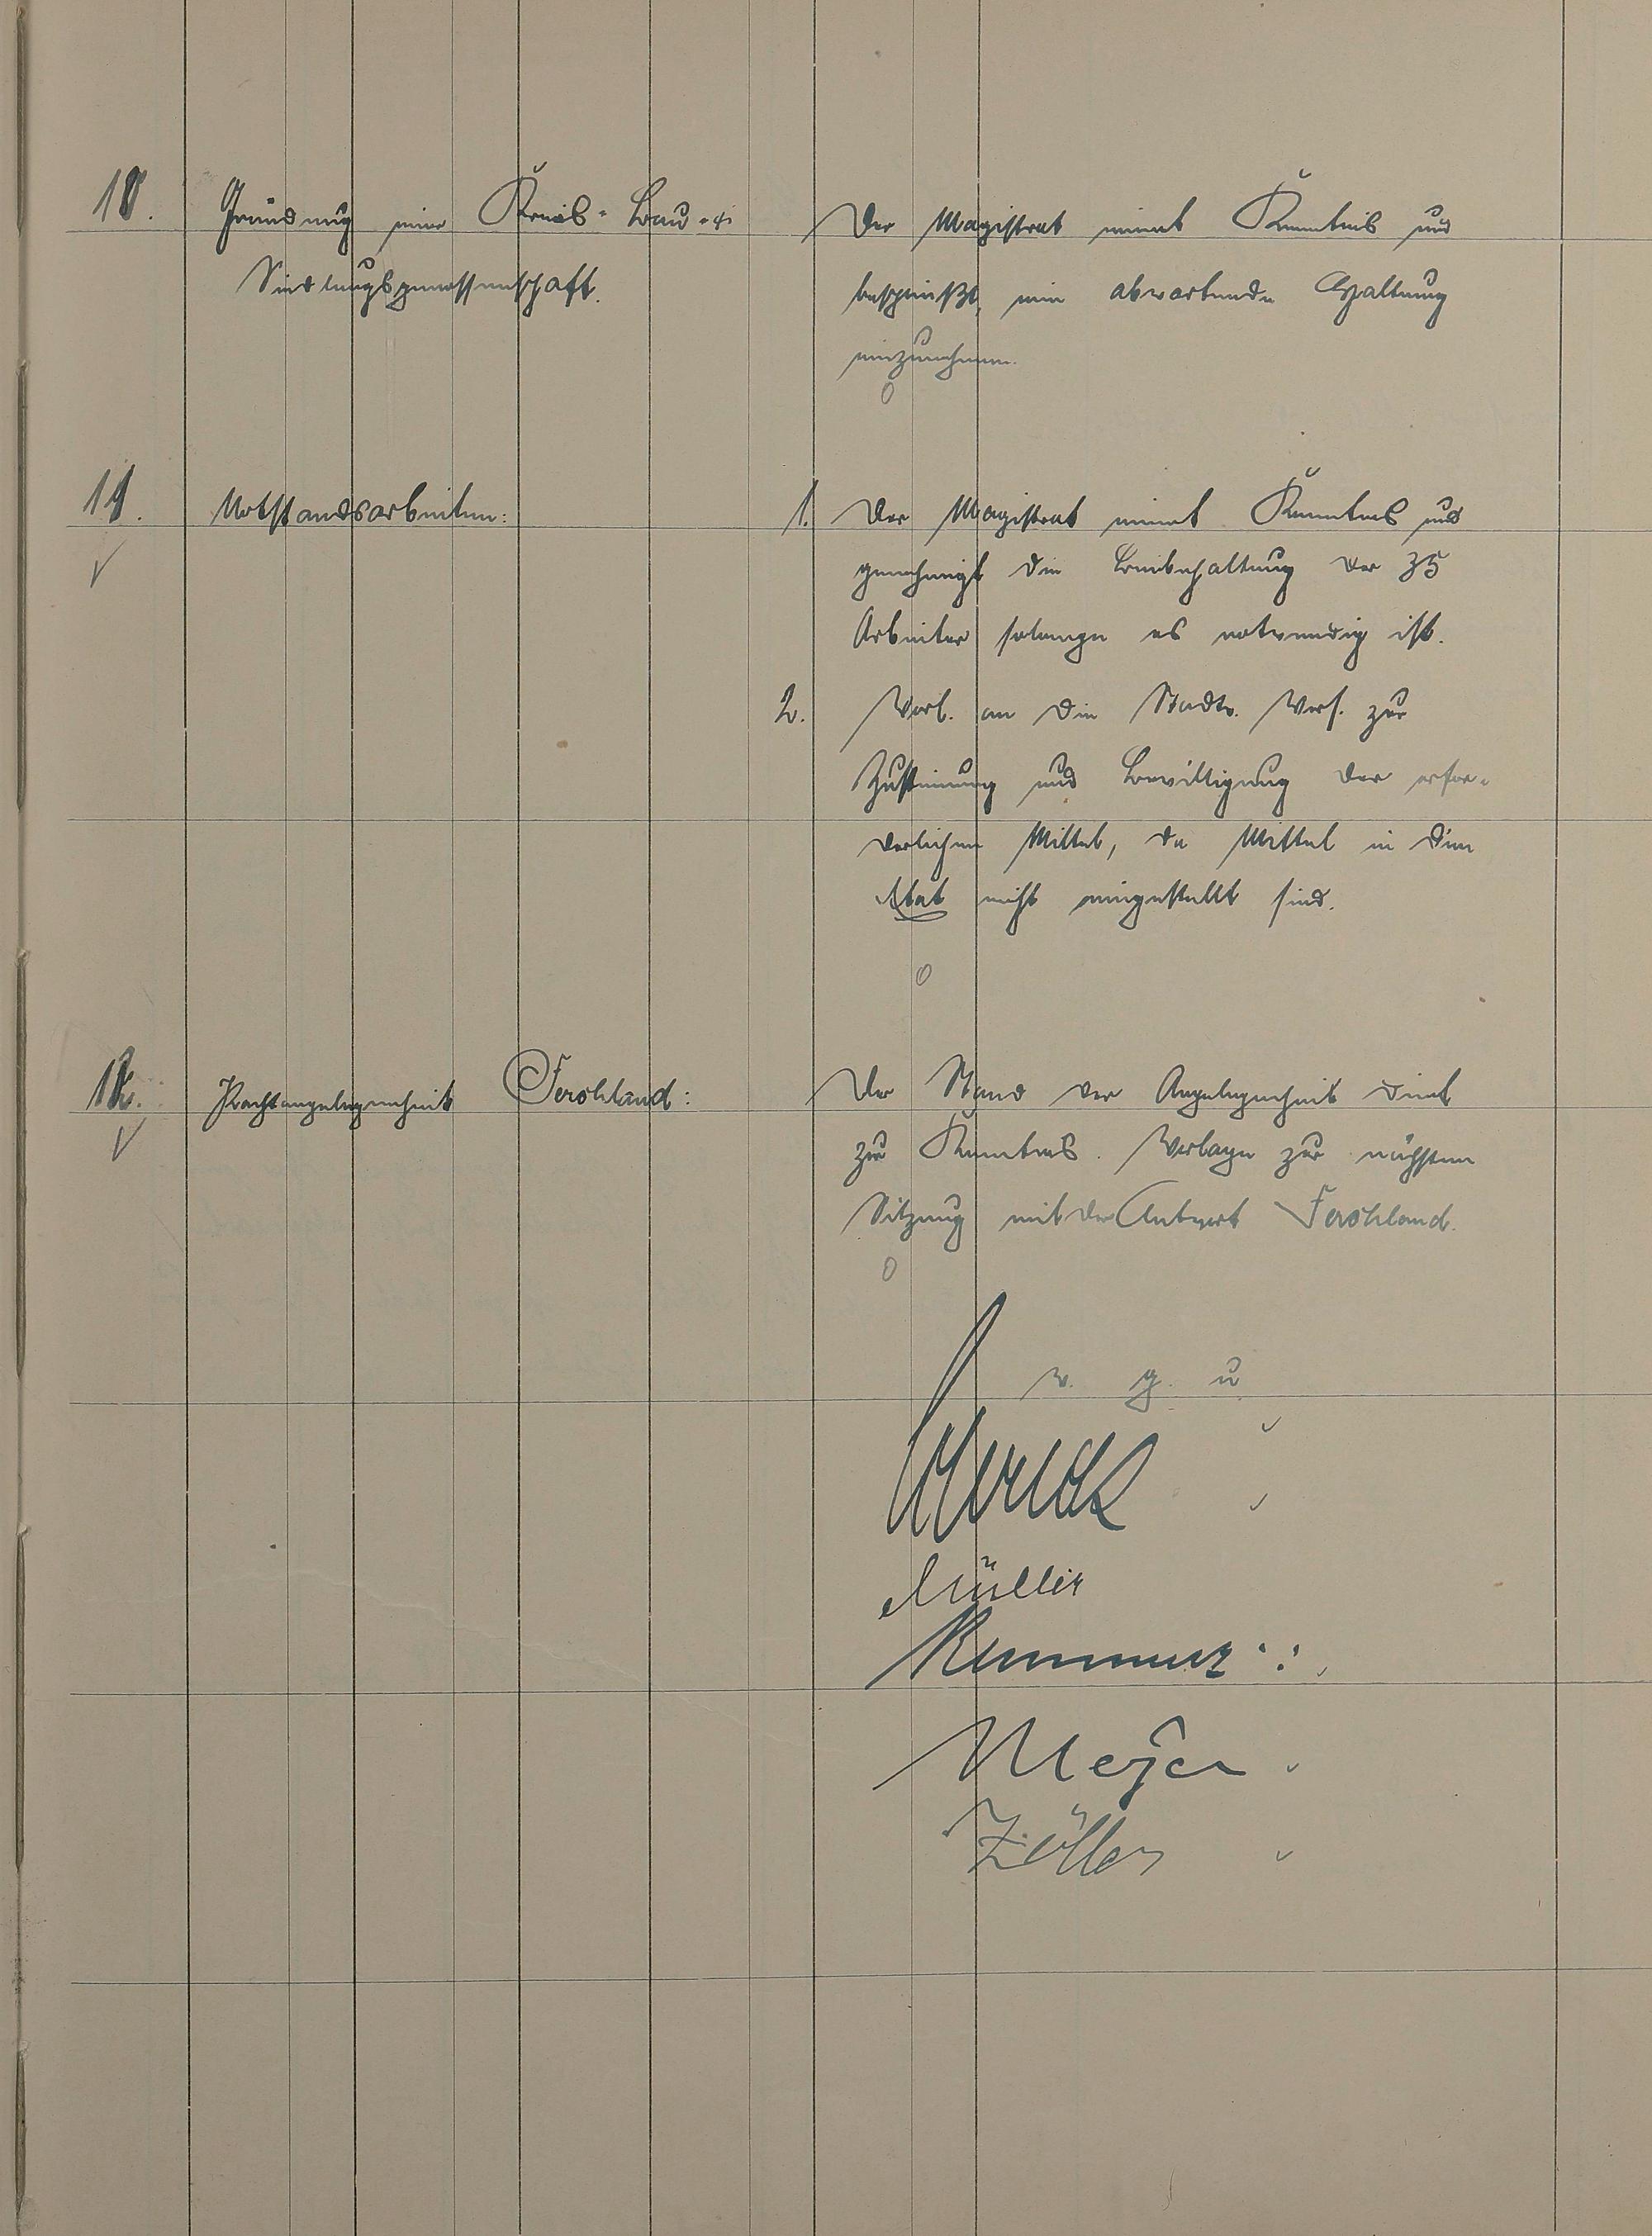 10.
Gründung einer Kreis-Bau- u.
Siedlungsgenossenschaft.
Der Magistrat nimmt Kenntnis und
beschließt, eine abwartende Haltung
einzunehmen.
11.
Notstandsarbeiten:
1. Der Magistrat nimmt Kenntnis und
genehmigt die Beibehaltung der 35
Arbeiter solange es notwendig ist.
2. Vorl. an die Stadtv. Vers. zur
Zustimmung und Bewilligung der erfor-
derlichen Mittel, da Mittel in den
Etat nicht eingestellt sind.
12.
Pachtangelegenheit Ferchland:
Der Stand der Angelegenheit dient
zur Kenntnis. Vorlage zur nächsten
Sitzung mit der Antwort Ferchland.
v. g. u.
Müller
Kummer
Meyer
Zöller